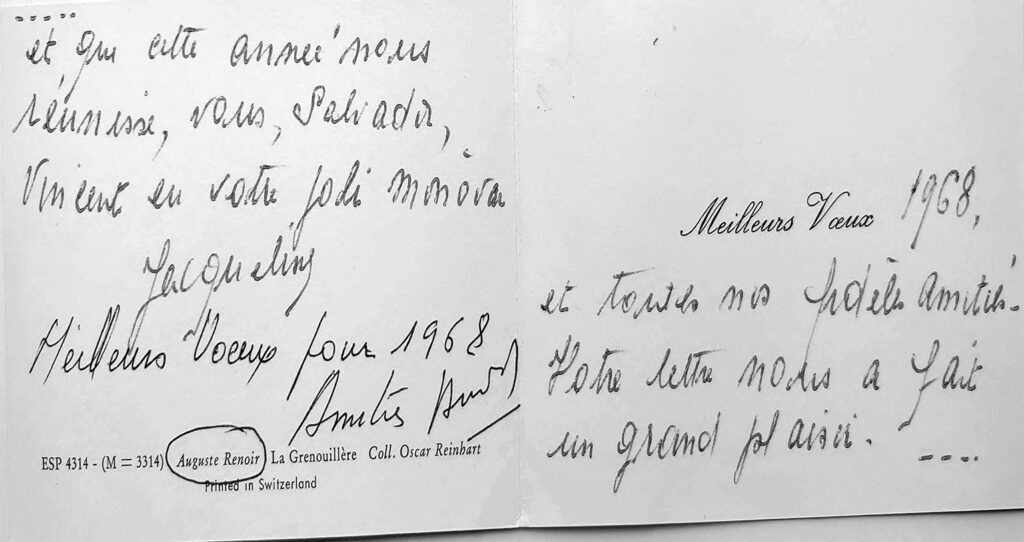 .....
et que cette année nous
réunisse, vous, Salvador,
Vincent en votre joli Monòvar
Jacqueline
Meilleurs Voeux pour 1968
Amitiés
ESP 4314 - (M = 3314) Auguste Renoir La Grenouillère Coll. Oscar Reinhart
Printed in Switzerland
Meilleurs Vœux 1968,
et toutes nos fidèles amitiés.
Votre lettre nous a fait
un grand plaisir. ....